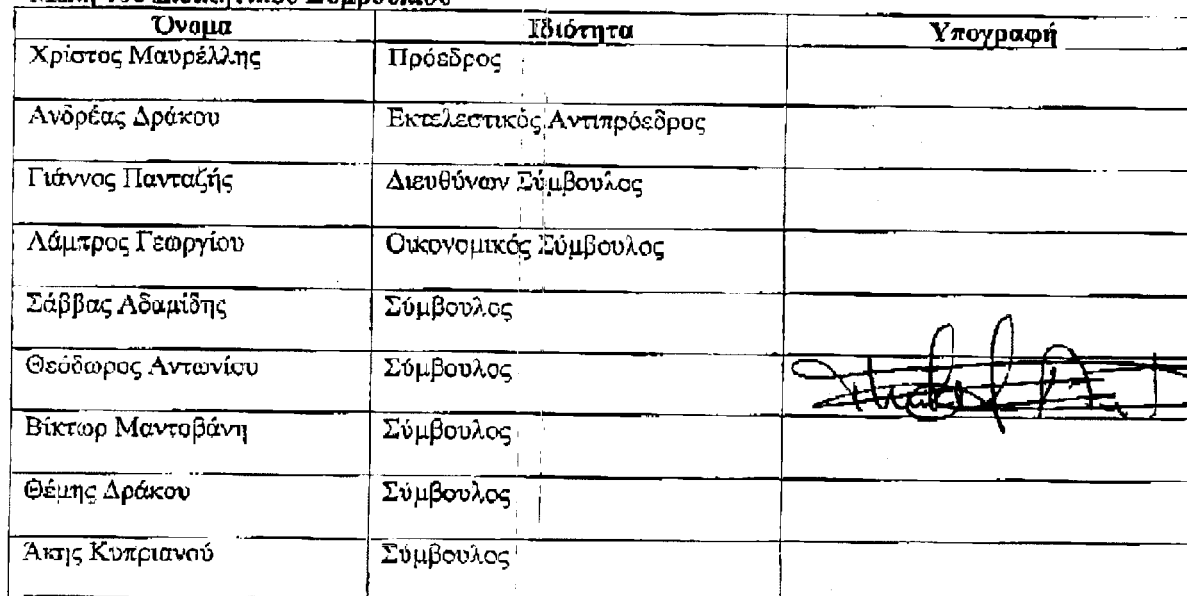 Μέλη του Διοικητικού Συμβουλίου
Όνομα Ιδιότητα Υπογραφή
Χρίστος Μαυρέλλης Πρόεδρος
Ανδρέας Δράκου Εκτελεστικός Αντιπρόεδρος
Γιάννος Πανταζής Διευθύνων Σύμβουλος
Λάμπρος Γεωργίου Οικονομικός Σύμβουλος
Σάββας Αδαμίδης Σύμβουλος
Θεόδωρος Αντωνίου Σύμβουλος
Βίκτωρ Μαντοβάνη Σύμβουλος
Θέμης Δράκου Σύμβουλος
Άκης Κυπριανού Σύμβουλος